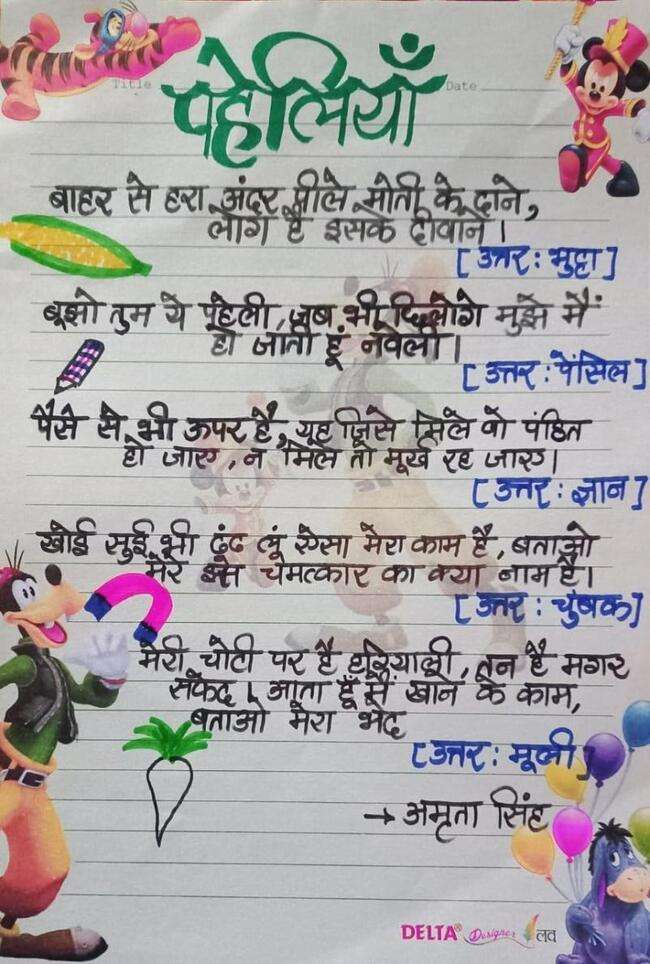 Title
Date
पहेलियाँ
बाहर से हरा अंदर पीले मोती के दाने,
लोग है इसके दीवाने।
[उत्तर: भुट्टा]
बूझो तुम ये पहेली, जब भी छिलोगे मुझे मैं
हो जाती हूं नवेली।
[उत्तर: पेंसिल]
पैसे से भी ऊपर है, यह जिसे मिले वो पंडित
हो जाए, न मिले तो मूर्ख रह जाए।
[उत्तर: ज्ञान]
खोई सुई भी ढूंढ लूं ऐसा मेरा काम है, बताओ
मेरे इस चमत्कार का क्या नाम है।
[उत्तर: चुंबक]
मेरी चोटी पर है हरियाली, तन है मगर
सफेद। आता हूँ मैं खाने के काम,
बताओ मेरा भेद
[उत्तर: मूली]
→ अमृता सिंह
DELTA® Designer लव